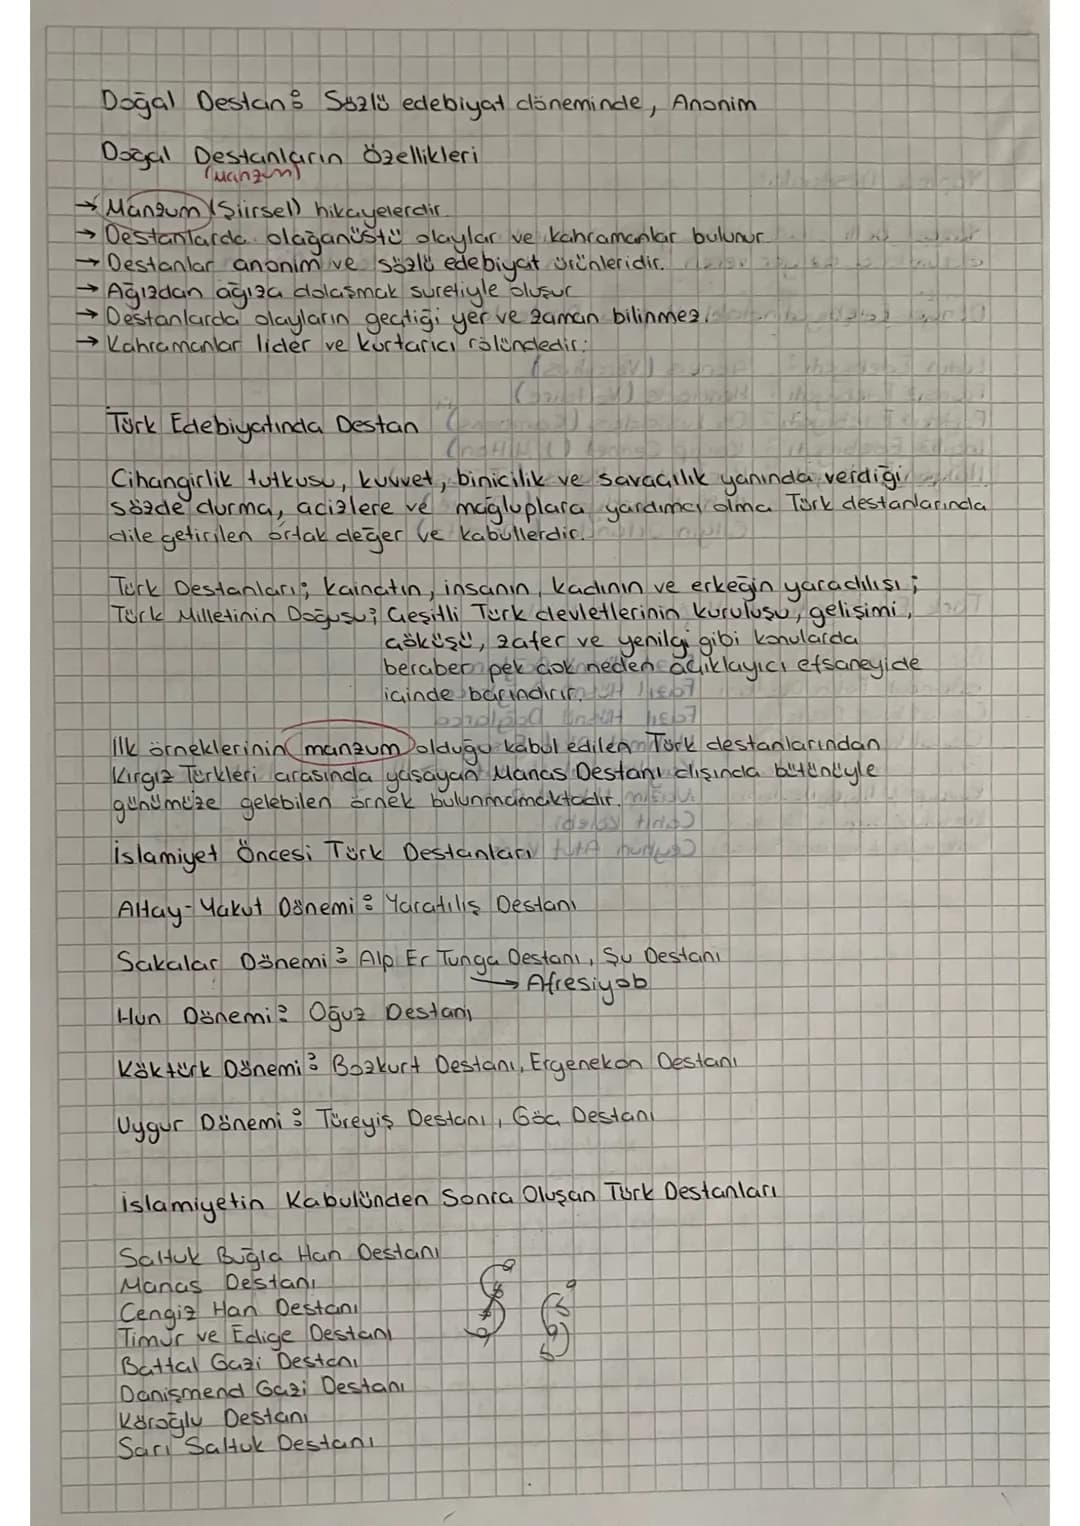 Doğal Destan: Sözlü edebiyat döneminde, Anonim
Doğal Destanların Özellikleri
(Manzum)
→ Manzum (Şiirsel) hikayelerdir.
→ Destanlarda olağanüstü olaylar ve kahramanlar bulunur.
→ Destanlar anonim ve sözlü edebiyat ürünleridir.
→ Ağızdan ağıza dolaşmak suretiyle oluşur
→ Destanlarda olayların geçtiği yer ve zaman bilinmez.
→ Kahramanlar lider ve kurtarıcı rölündedir.
Türk Edebiyatında Destan
Cihangirlik tutkusu, kuvvet, binicilik ve savaçılık yanında verdiği
sözde durma, acizlere ve mağluplara yardımcı olma Türk destanlarında
dile getirilen ortak değer ve kabullerdir.
Türk Destanları; kainatın, insanın, kadının ve erkeğin yaradılışı;
Türk Milletinin Doğuşu; Çeşitli Türk devletlerinin kuruluşu, gelişimi,
çöküşü, zafer ve yenilgi gibi konularda
beraber pek çok neden açıklayıcı efsaneyide
içinde barındırır.
İlk örneklerinin manzum olduğu kabul edilen Türk destanlarından
Kırgız Türkleri arasında yaşayan Manas Destanı dışında bütünüyle
günümüze gelebilen örnek bulunmamaktadır.
İslamiyet Öncesi Türk Destanları
Altay-Yakut Dönemi: Yaratılış Destanı
Sakalar Dönemi: Alp Er Tunga Destanı, Şu Destanı
→ Afresiyab
Hun Dönemi: Oğuz Destanı
Köktürk Dönemi: Bozkurt Destanı, Ergenekon Destanı
Uygur Dönemi: Türeyiş Destanı, Göç Destanı
İslamiyetin Kabulünden Sonra Oluşan Türk Destanları
Saltuk Buğla Han Destanı
Manas Destanı
Cengiz Han Destanı
Timur ve Edige Destanı
Battal Gazi Destanı
Danişmend Gazi Destanı
Köroğlu Destanı
Sarı Saltuk Destanı